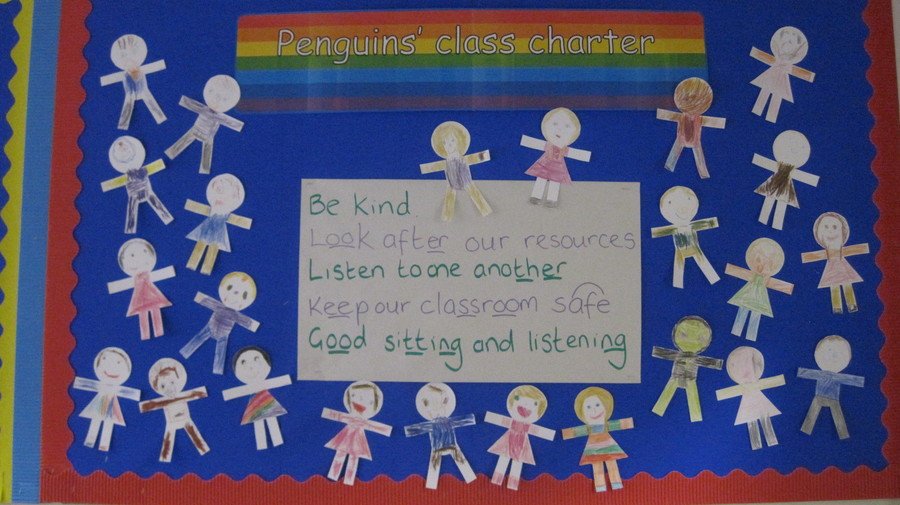 Penguins' class charter
Be Kind.
Look after our resources
Listen to one another
Keep our classroom safe
Good sitting and listening